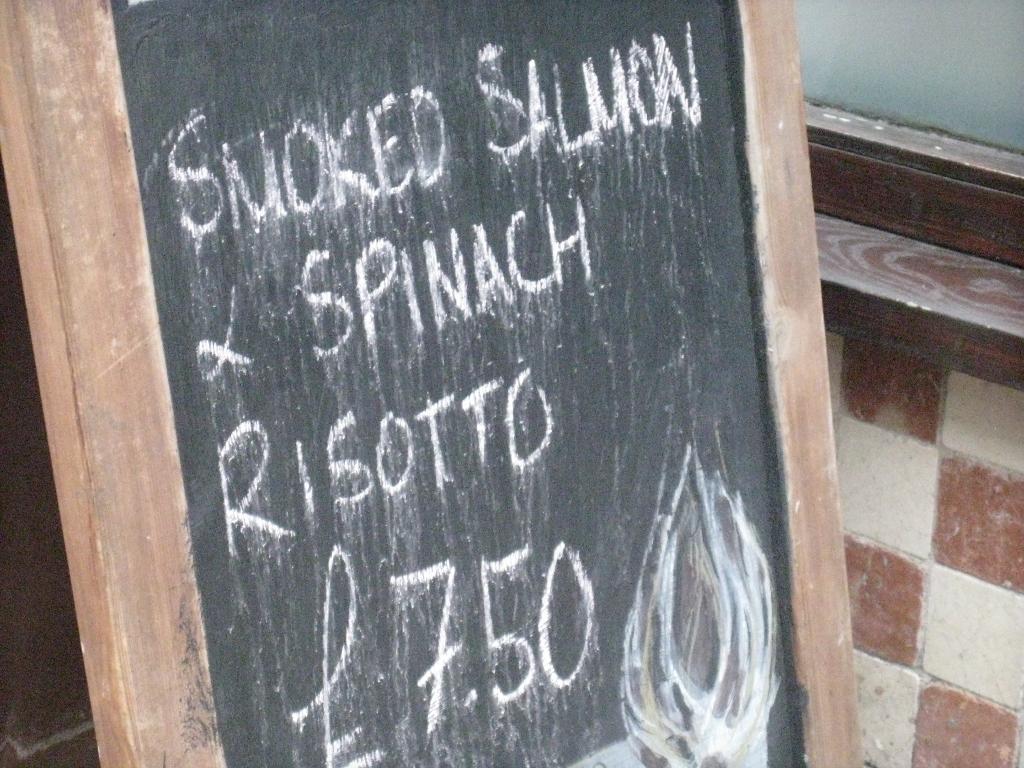 SMOKED SALMON
& SPINACH
RISOTTO
£7.50